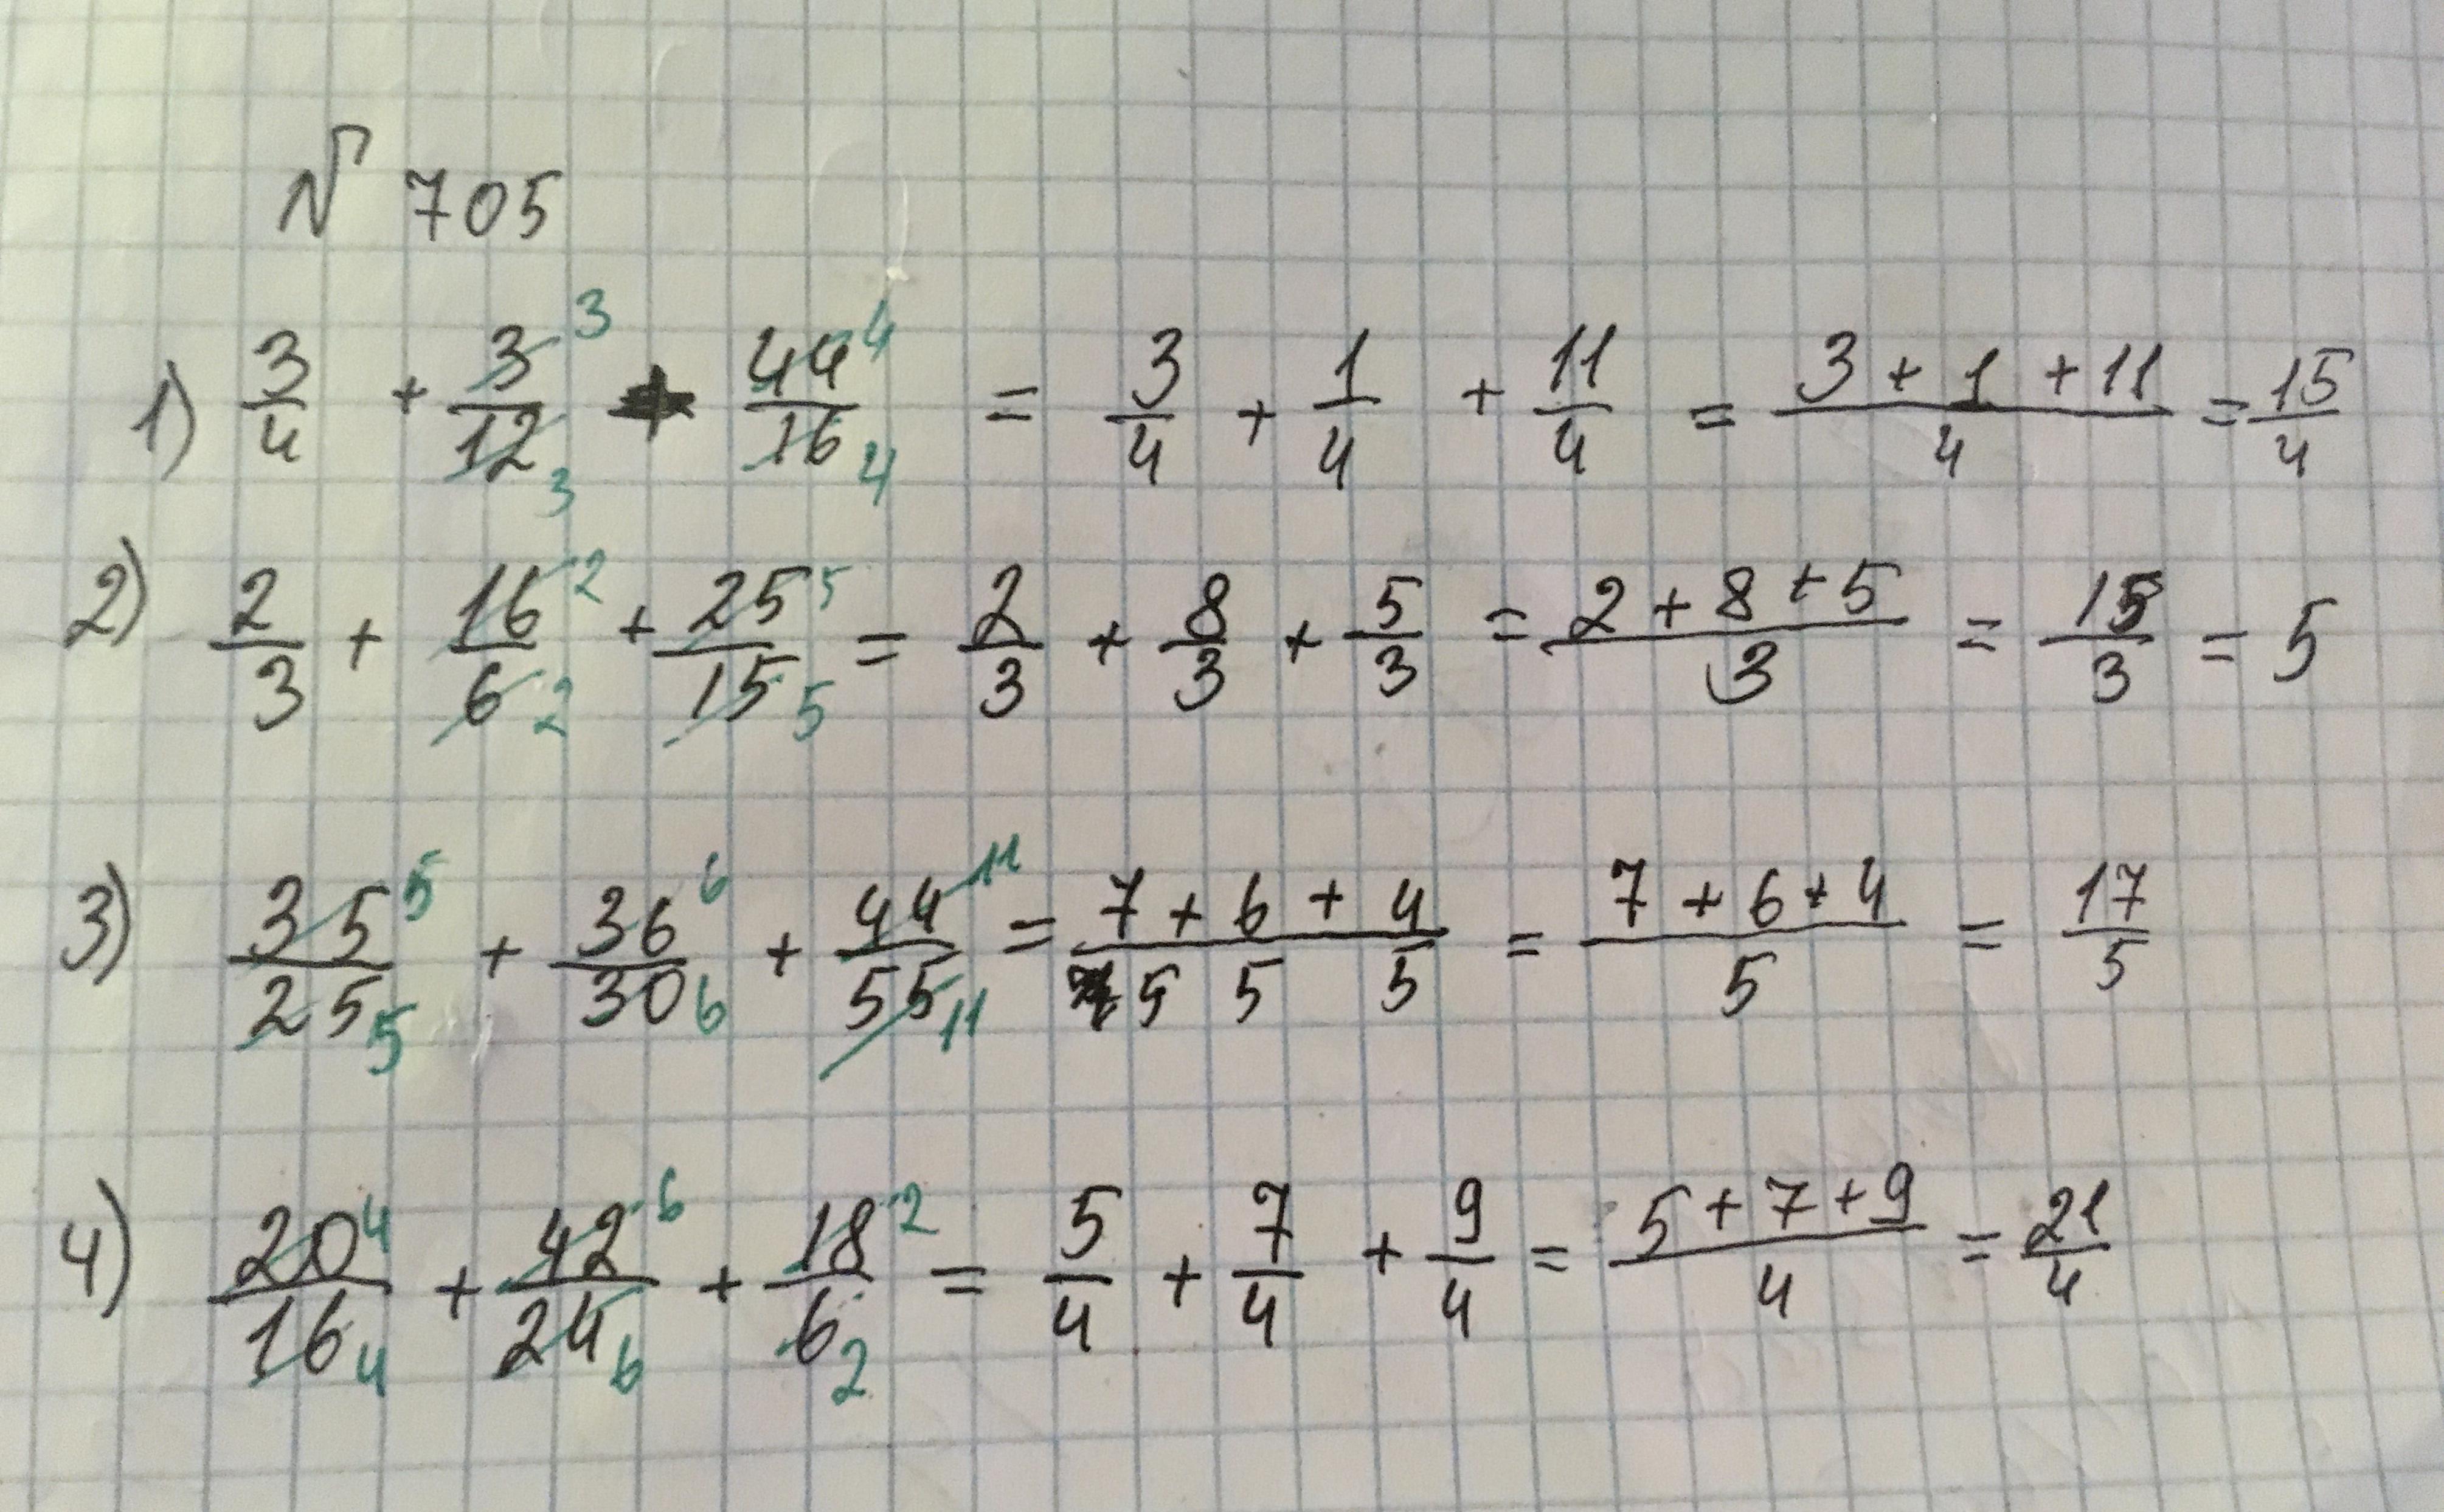 № 705
1) 3/4 + 3/12 (3/3) + 44/16 (4/4) = 3/4 + 1/4 + 11/4 = (3 + 1 + 11)/4 = 15/4
2) 2/3 + 16/6 (2/2) + 25/15 (5/5) = 2/3 + 8/3 + 5/3 = (2 + 8 + 5)/3 = 15/3 = 5
3) 35/25 (5/5) + 36/30 (6/6) + 44/55 (11/11) = 7/5 + 6/5 + 4/5 = (7 + 6 + 4)/5 = 17/5
4) 20/16 (4/4) + 42/24 (6/6) + 18/6 (2/2) = 5/4 + 7/4 + 9/4 = (5 + 7 + 9)/4 = 21/4